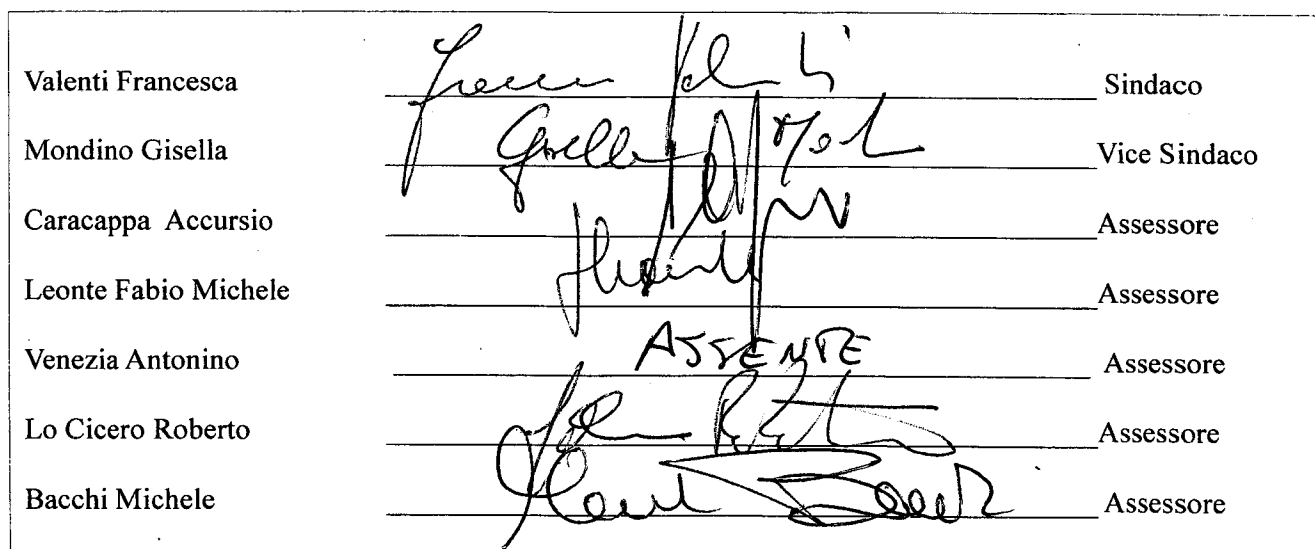 Valenti Francesca Sindaco
Mondino Gisella Gisella Vice Sindaco
Caracappa Accursio Assessore
Leonte Fabio Michele Assessore
Venezia Antonino ASSENTE Assessore
Lo Cicero Roberto Assessore
Bacchi Michele Assessore